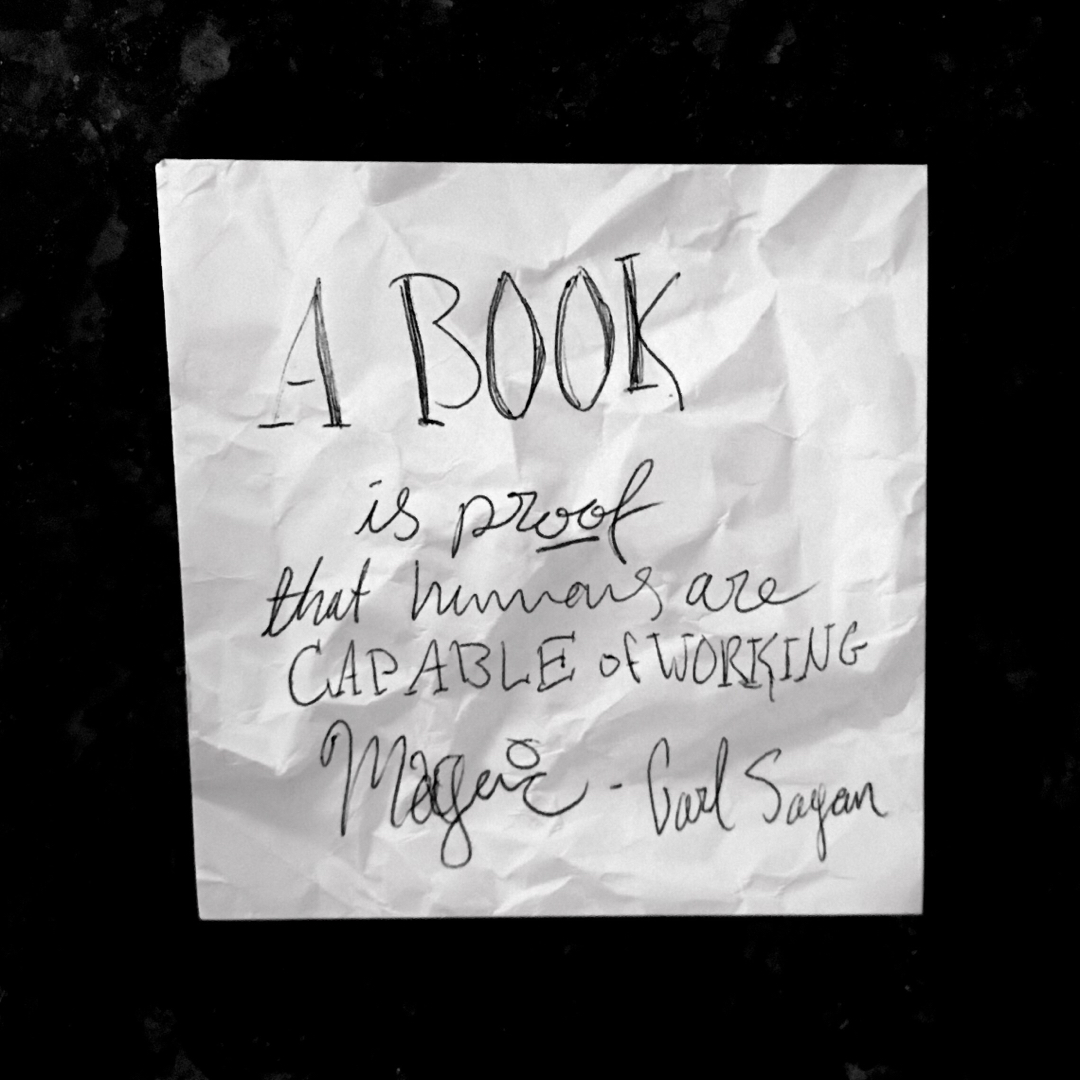 A BOOK
is proof
that humans are
CAPABLE of WORKING
Magic - Carl Sagan